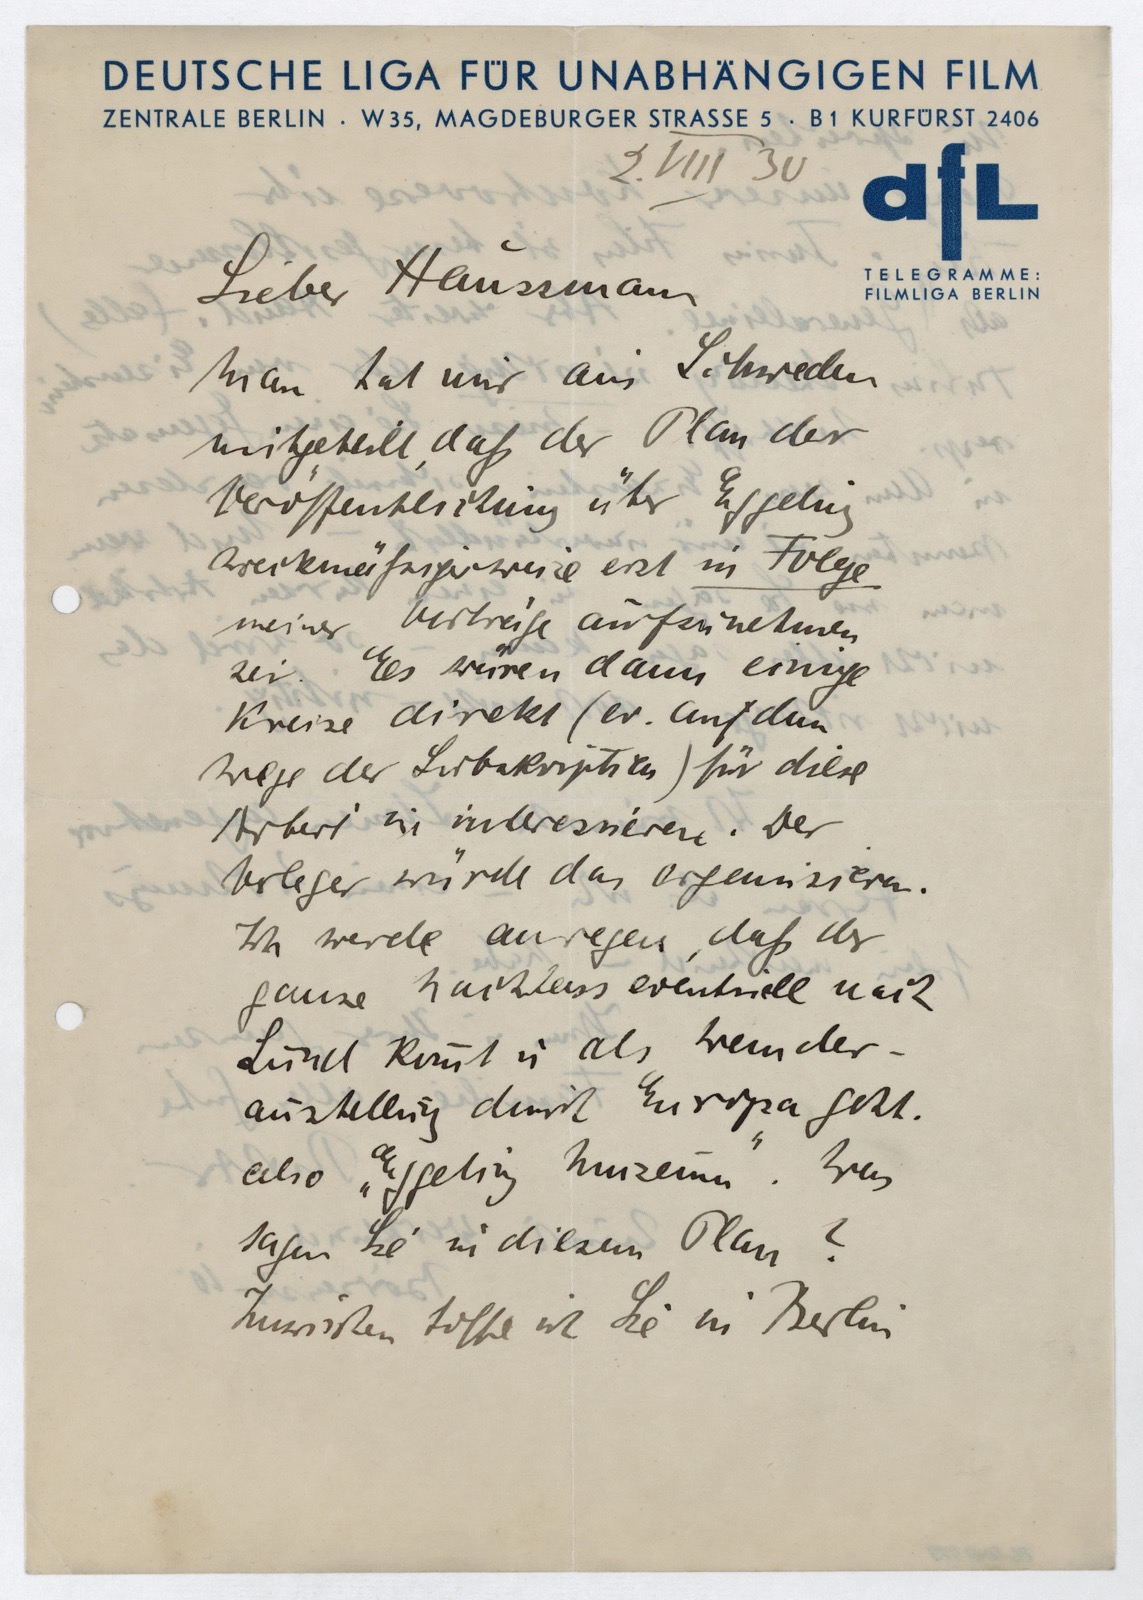 DEUTSCHE LIGA FÜR UNABHÄNGIGEN FILM
ZENTRALE BERLIN · W35, MAGDEBURGER STRASSE 5 · B1 KURFÜRST 2406
2. VIII 30
dfL
TELEGRAMME:
FILMLIGA BERLIN
Lieber Haussmann
Man hat mir aus Schweden
mitgeteilt, daß der Plan der
Veröffentlichung über Eggeling
zweckmäßigerweise erst in Folge
meiner Vorträge aufzunehmen
sei. Es wären dann einige
Kreise direkt (ev. auf dem
Wege der Subskription) für diese
Arbeit zu interessieren. Der
Verleger würde das organisieren.
Ich werde anregen, daß der
ganze Nachlass eventuell nach
Lund komt u als Wander-
austellung durch Europa geht.
also „Eggeling Museum". Was
sagen Sie zu diesem Plan?
Inzwischen hoffe ich Sie in Berlin